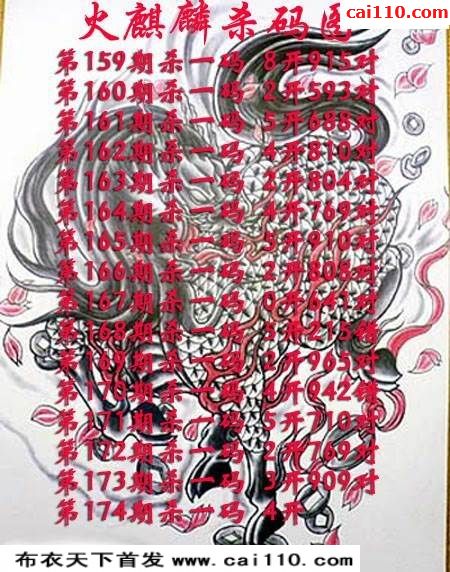 cai110.com
火麒麟杀码图
第159期杀一码 8开915对
第160期杀一码 2开593对
第161期杀一码 5开688对
第162期杀一码 4开810对
第163期杀一码 2开804对
第164期杀一码 4开769对
第165期杀一码 5开910对
第166期杀一码 2开808对
第167期杀一码 0开641对
第168期杀一码 5开215错
第169期杀一码 2开965对
第170期杀一码 4开942错
第171期杀一码 5开710对
第172期杀一码 2开769对
第173期杀一码 3开909对
第174期杀一码 4开
布衣天下首发 www.cai110.com